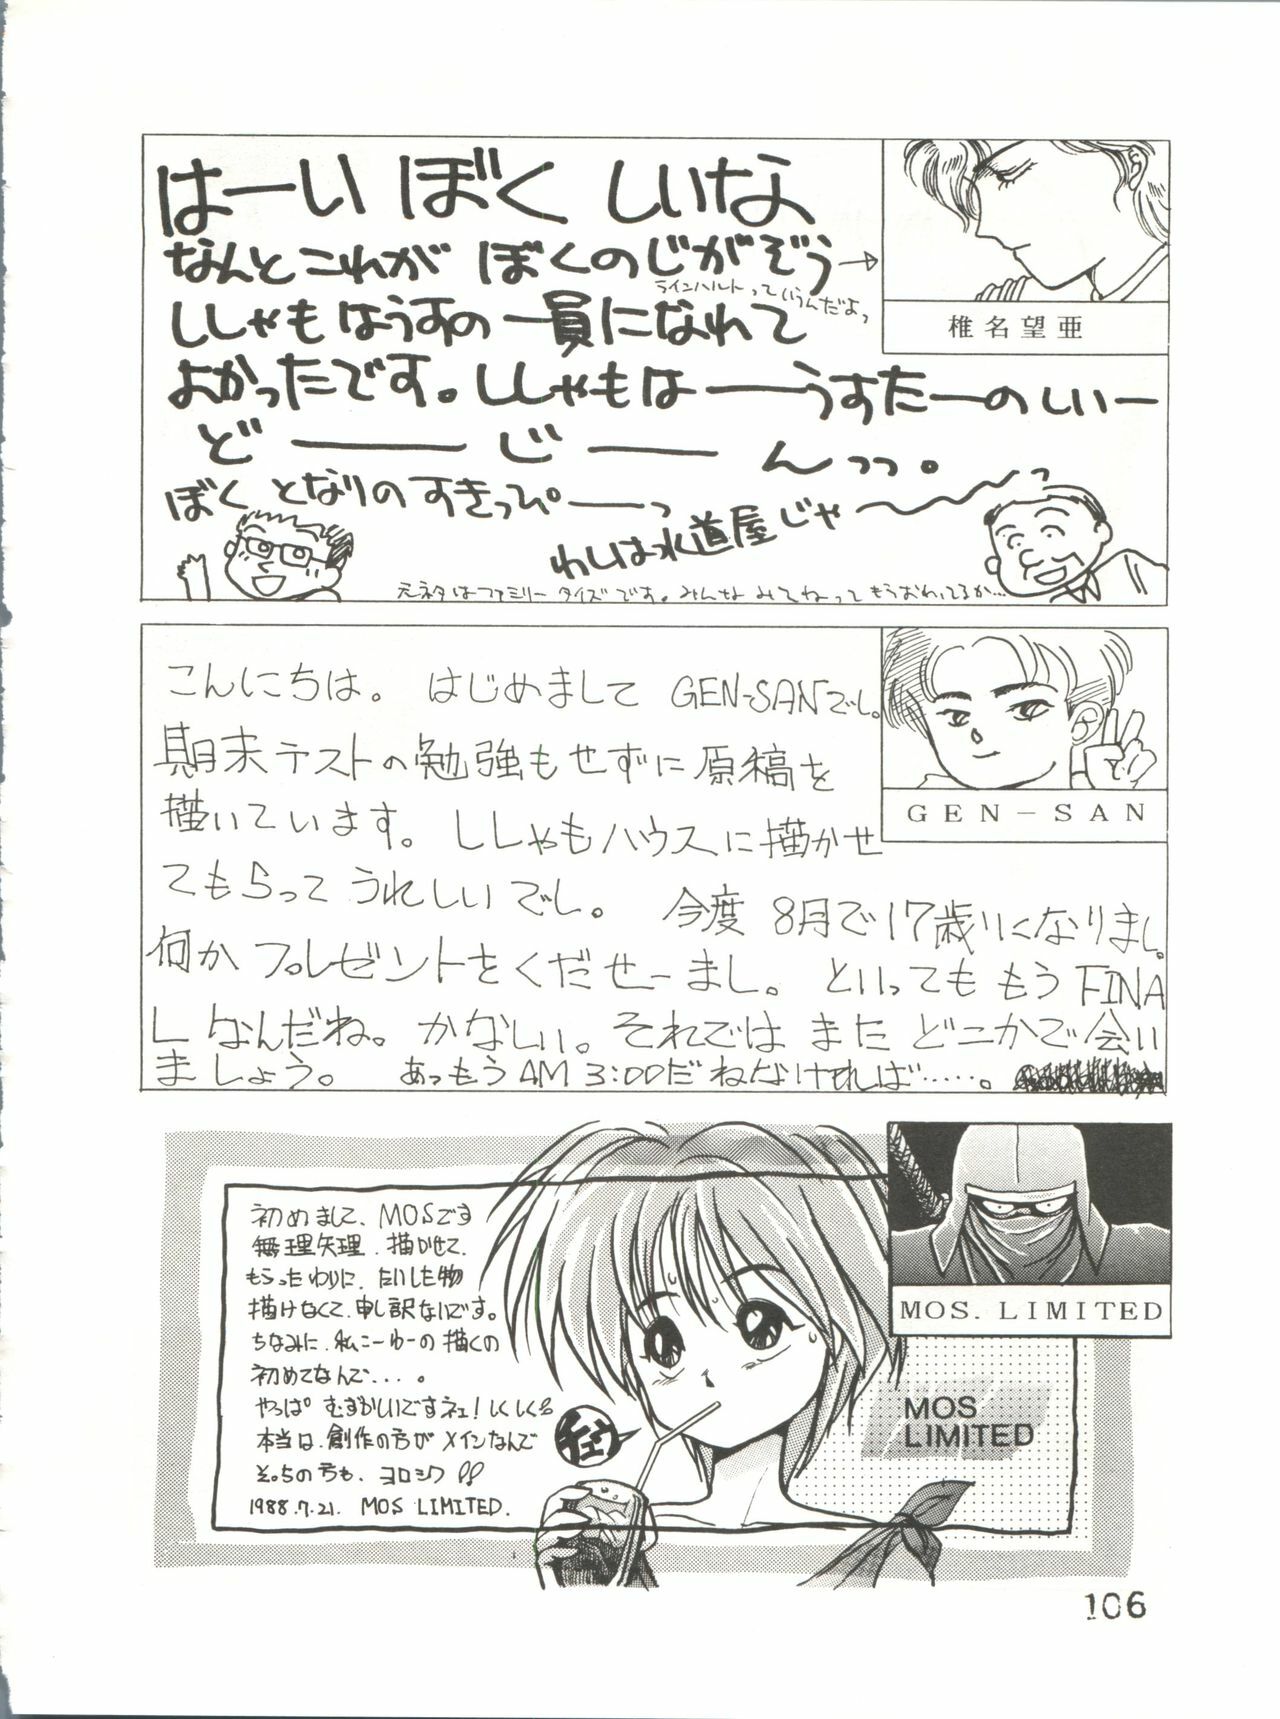 はーい ぼく しいな
なんとこれが ぼくのじがぞう→
ラインハルトっていうんだよっ
ししゃもはうすの 一員になれて
よかったです。ししゃもは――うすたーのしいー
ど――じ――んっっ。
ぼく となりのすきっぴ――っ
わしは水道屋じゃ～～っ
元ネタはファミリータイズです。みんな みてねって もうおわってるか…
椎名望亜
こんにちは。 はじめまして GEN-SANでし。
期末テストの勉強もせずに原稿を
描いています。ししゃもハウスに描かせ
てもらって うれしいでし。 今度 8月で17歳りになりまし。
何か プレゼントをくだせーまし。 といっても もう FINA
L なんだね。かなしい。それでは また どこかで会い
ましょう。 あっもう AM 3:00だ ねなければ……。
GEN-SAN
初めまして、MOSです
無理矢理、描かせて、
もらったわりに、たいした物
描けなくて、申し訳ないです。
ちなみに、私こーゆーの描くの
初めてなんで・・・。
やっぱ むずかしいですネェ！しくしく
本当は、創作の方がメインなんで
そっちの方も、ヨロシク!!
1988.7.21. MOS LIMITED.
チュウ
MOS. LIMITED
MOS
LIMITED
106